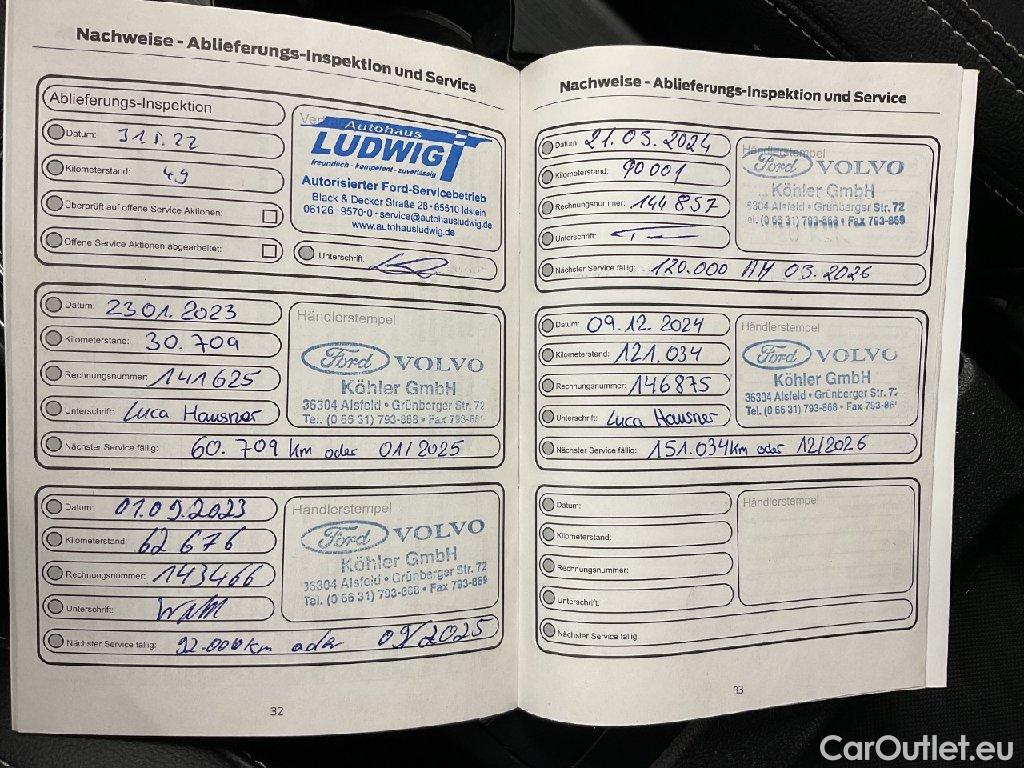 Nachweise - Ablieferungs-Inspektion und Service
Ablieferungs-Inspektion
Datum: 22
Kilometerstand: 49
Überprüft auf offene Service Aktionen:
Offene Service Aktionen abgearbeitet:
Autohaus
LUDWIG
freundlich - kompetent - zuverlässig
Autorisierter Ford-Servicebetrieb
Black & Decker Straße 28 - 65510 Idstein
06126 - 9570-0 - service@autohausludwig.de
www.autohausludwig.de
Unterschrift:
Datum: 23 01. 2023
Kilometerstand: 30. 709
Rechnungsnummer: 141625
Unterschrift: Luca Hausner
Nächster Service fällig: 60. 709 km oder 01/2025
Händlerstempel
Ford VOLVO
Köhler GmbH
36304 Alsfeld • Grünberger Str. 72
Tel. (0 66 31) 793-868 • Fax 793-869
Datum: 01.09.2023
Kilometerstand: 62 676
Rechnungsnummer: 143466
Unterschrift:
Nächster Service fällig: 92.000 km oder 09/2025
Händlerstempel
Ford VOLVO
Köhler GmbH
36304 Alsfeld • Grünberger Str. 72
Tel. (0 66 31) 793-868 • Fax 793-869
32
Nachweise - Ablieferungs-Inspektion und Service
Datum: 21. 03. 2024
Kilometerstand: 90 001
Rechnungsnummer: 144 857
Unterschrift:
Nächster Service fällig: 120.000 03. 2026
Händlerstempel
Ford VOLVO
Köhler GmbH
36304 Alsfeld • Grünberger Str. 72
Tel. (0 66 31) 793-868 • Fax 793-869
Datum: 09. 12. 2024
Kilometerstand: 121. 034
Rechnungsnummer: 146875
Unterschrift: Luca Hausner
Nächster Service fällig: 151.034 km oder 12/2026
Händlerstempel
Ford VOLVO
Köhler GmbH
36304 Alsfeld • Grünberger Str. 72
Tel. (0 66 31) 793-868 • Fax 793-869
Datum:
Kilometerstand:
Rechnungsnummer:
Unterschrift:
Nächster Service fällig:
Händlerstempel
CarOutlet.eu